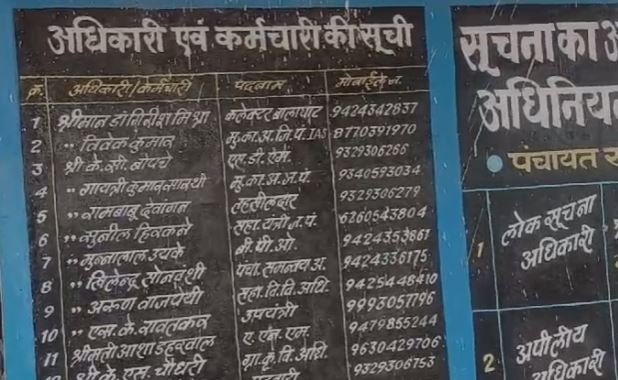 अधिकारी एवं कर्मचारी की सूची
क्र. अधिकारी/कर्मचारी पदनाम मोबाईल नं.
1 श्रीमान डॉ गिरीश मिश्रा कलेक्टर बालाघाट 9424342837
2 " विवेक कुमार मु.का.अ.जि.पं. IAS 8770391970
3 श्री के.सी. बोपचे एस.डी.एम. 9329306266
4 " गायत्री कुमार सारथी मु.का.अ.ज.पं. 9340593034
5 " रामबाबू देवांगन तहसीलदार 9329306279
6 " सुनील हिरकने सहा.यंत्री ज.पं. 6260543804
7 " मुन्नालाल उयके बी.पी.ओ. 9424353861
8 " खिलेन्द्र सोनवंशी पंचा.समन्वय अ. 9424336175
9 " अरुणा वाजपेयी सहा.वि.वि.अधि. 9425448410
10 " एस.के. रावतकर उपयंत्री 9993057196
11 श्रीमती आशा डहरवाल ए.एन.एम. 9479855244
श्री के.एस. चौधरी ग्रा.कृ.वि.अधि. 9630429706
पटवारी 9329306753
सूचना का
अधिनिय
पंचायत
1 लोक सूचना
अधिकारी
2. अपीलीय
अधिकारी